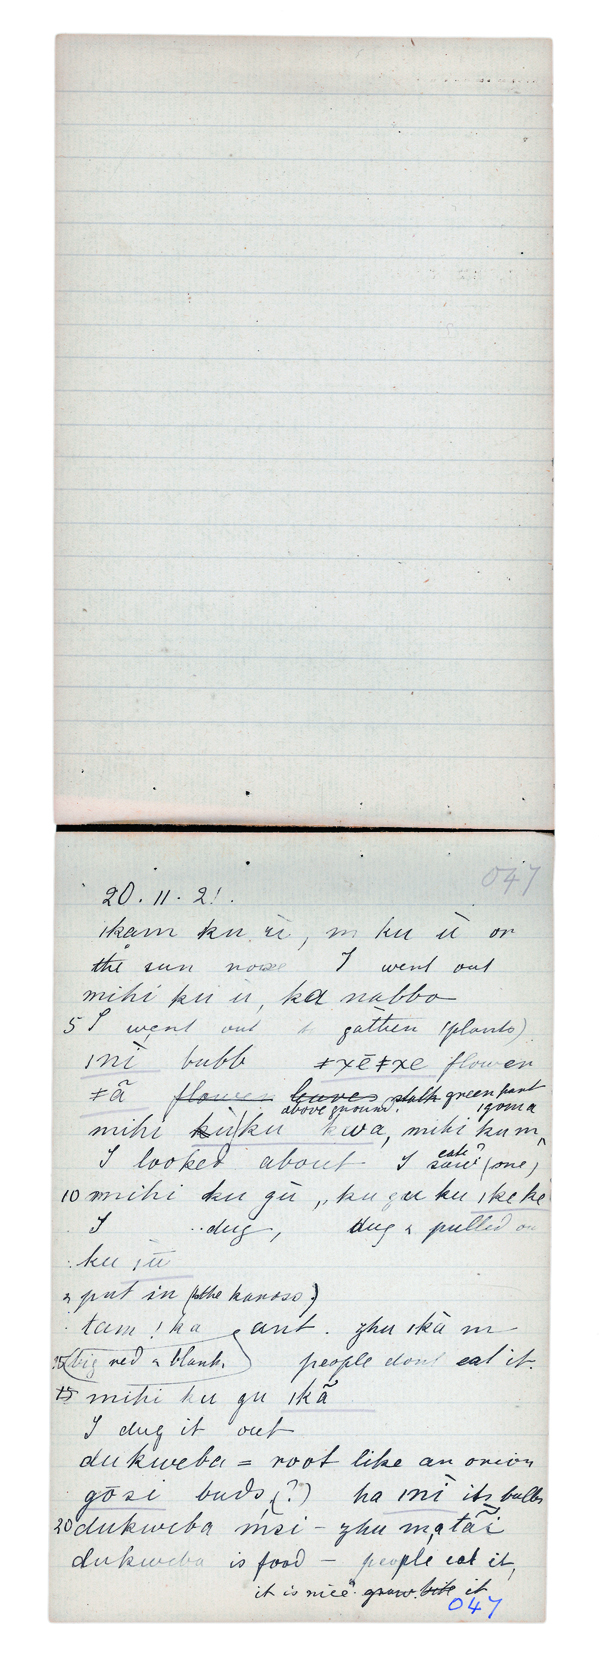 047
20.11.21.
ıkam ku ıı̀, m ku ù on
the sun rose I went out
mihi ku ù, ka nabbo
5 I went out to gather (plants)
ınì bulb ǂxēǂxe flower
ǂã flower leaves stalk green part
above ground. ıgoma
mihi kù ku kwa, mihi kum
I looked about I saw (one)
eat?
10 mihi ku gù, ku gu ku ıkeke
I dug, dug & pulled out
ku ıū
& put in (the kaross)
tam!ka ant. zhu ıkà m
big red & black. people dont eat it.
15 mihi ku gu ıkã
I dug it out
dukweba = root like an onion
gōsi buds (?) ha ınì its bulbs
20 dukweba m̀si - zhu m,a tãĩ
dukweba is food - people eat it,
it is nice it
047